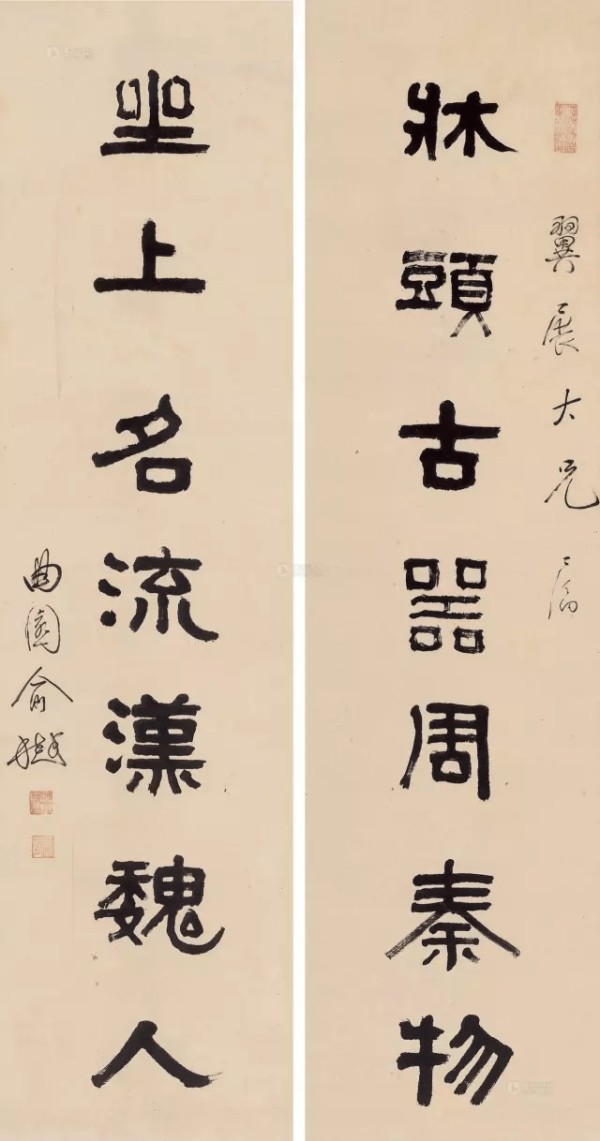 翼展大兄屬
牀頭古器周秦物
坐上名流漢魏人
曲園俞樾